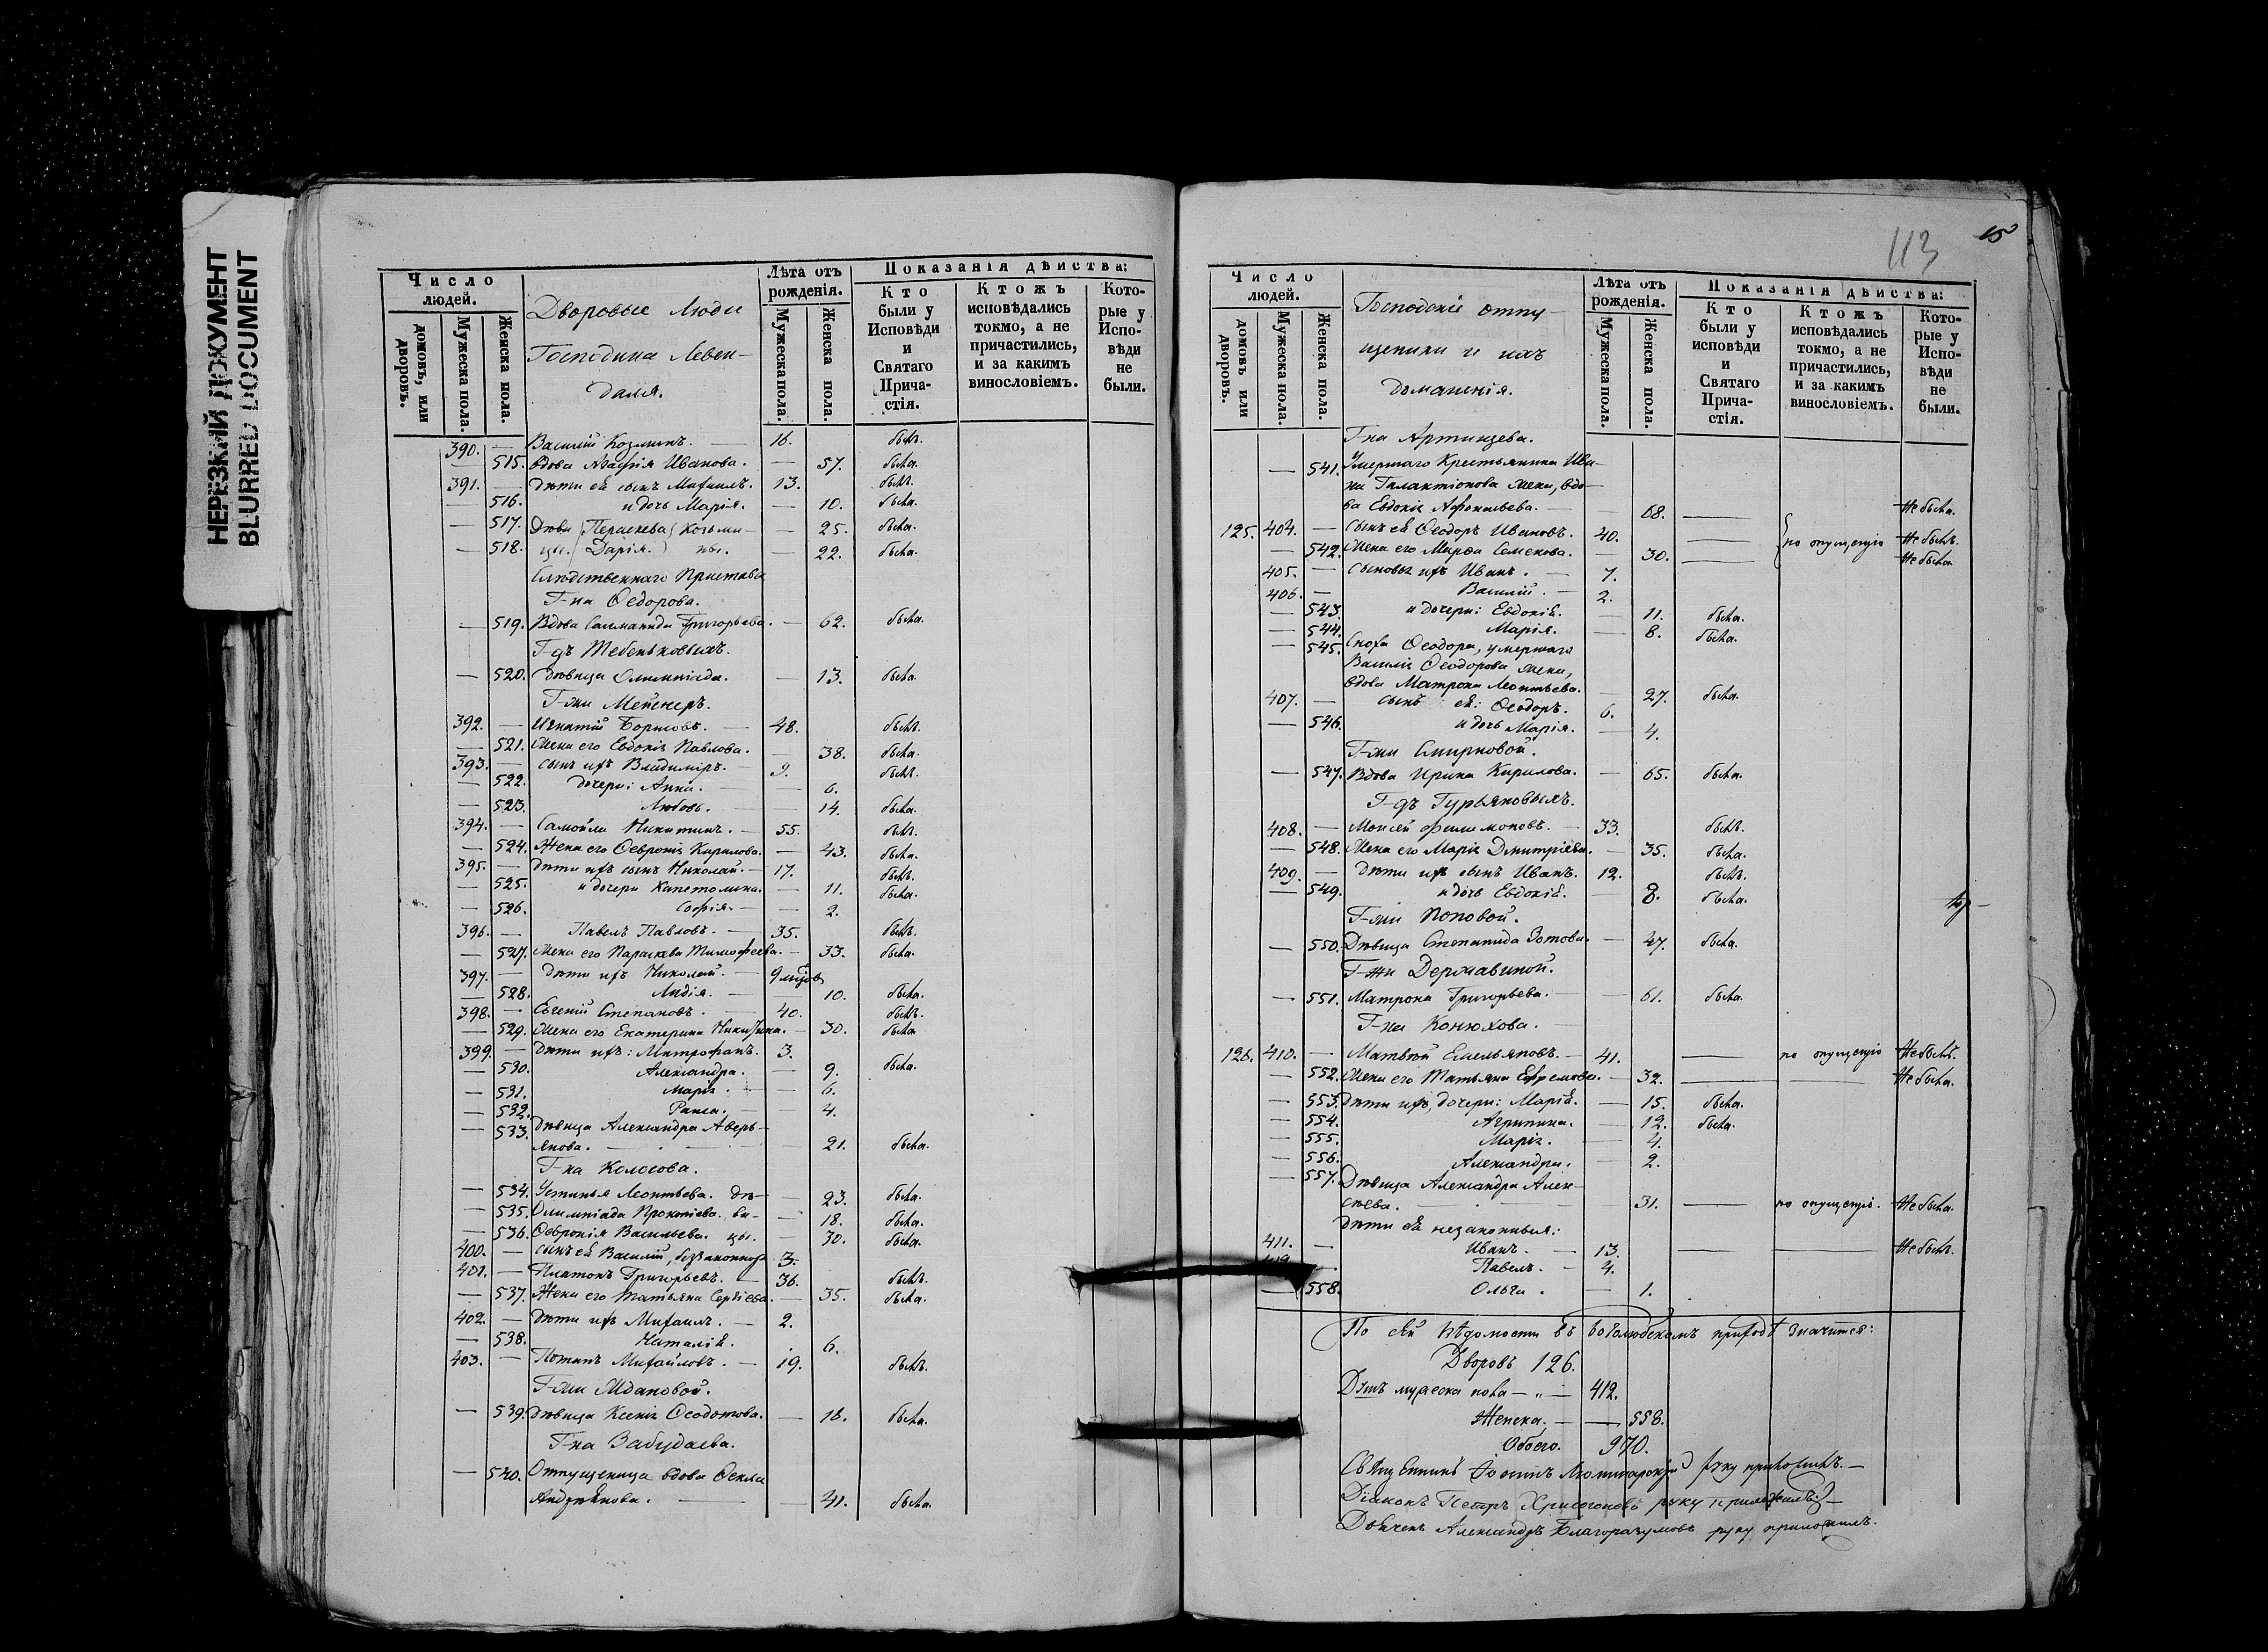 НЕРЕЗКИЙ ДОКУМЕНТ
BLURRED DOCUMENT
Число людей.
домовъ, или дворовъ.
Мужеска пола.
Женска пола.
Дворовые Люди
Господина Левен-
даля.
Лѣта отъ рожденія.
Мужеска пола.
Женска пола.
Показанія дѣйства:
Кто были у Исповѣди и Святаго Прича-стія.
Ктожъ исповѣдались токмо, а не причастились, и за какимъ винословіемъ.
Кото-рые у Испо-вѣди не были.
390. — Василій Козминъ. — 16. былъ.
— 515. вдова Агафія Иванова. — 57. была.
391. — дѣти ея сынъ Михаилъ. 13. былъ.
— 516. и дочь Марія. — 10. была.
— 517. Дѣви (Пераскева) Козьми- — 25. была.
— 518. цы. (Дарія.) ны. — 22. была.
Слѣдственнаго Пристава
Г-на Ѳедорова.
— 519. Вдова Саломанида Григорьева. — 62. была.
Г-дъ Тебеньковыхъ.
— 520. дѣвица Олимпіада. — 13. была.
Г-жи Мейснеръ.
392. — Игнатій Борисовъ. — 48. былъ.
— 521. Жена его Евдокія Павлова. — 38. была.
393. — сынъ ихъ Владиміръ. — 9. былъ.
— 522. дочери: Анна. — 6.
— 523. Любовь. — 14. была.
394. — Самойла Никитинъ. — 55. былъ.
— 524. Жена его Ѳевронія Кирилова. — 43. была.
395. — дѣти ихъ сынъ Николай. — 17. былъ.
— 525. и дочери Капетолина. — 11. была.
— 526. Софія. — 2.
396. — Павелъ Павловъ. — 35. былъ.
— 527. Жена его Параскева Тимофеева. — 33. была.
397. — дѣти ихъ Николай. — 9
— 528. Лидія. — 10. была.
398. — Евгеній Степановъ. — 40. былъ.
— 529. Жена его Екатерина Никитина. — 30. была
399. — дѣти ихъ: Митрофанъ. 3.
— 530. Александра. — 9. была.
— 531. Марія. — 6.
— 532. Раиса. — 4.
— 533. дѣвица Александра Аверь-
янова. — 21. была.
Г-на Колосова.
— 534. Устинья Леонтьева. дѣ- — 23. была.
— 535. Олимпіада Прокопіева. ви- — 18. была.
— 536. Ѳевронія Васильева. цы. — 30. была.
400. — сынъ ея Василій, беззаконнор. 3.
401. — Платонъ Григорьевъ. — 36. былъ.
— 537. Жена его Татьяна Сергіева. — 35. была.
402. — дѣти ихъ Михаилъ. — 2.
— 538. Наталія. 6.
403. — Потапъ Михайловъ. — 19. былъ.
Г-жи Ждановой.
— 539. дѣвица Ксенія Ѳеодотова. — 18. была.
Г-на Забудаева.
— 540. Отпущеница вдова Ѳекла
Андреянова. — 41. была.
113
15
Число людей.
домовъ или дворовъ.
Мужеска пола.
Женска пола.
Господскіе отпу-
щеники и ихъ
домашнія.
Лѣта отъ рожденія.
Мужеска пола.
Женска пола.
Показанія дѣйства:
Кто были у исповѣди и Святаго Прича-стія.
Ктожъ исповѣдались токмо, а не причастились, и за какимъ винословіемъ.
Кото-рые у Испо-вѣди не были.
Г-на Артинцева.
— 541. Умершаго Крестьянина Ива-
на Галактіонова жена, вдо-
ва Евдокія Афонасьева. — 68. — Не была.
125. 404. — Сынъ ея Ѳеодоръ Ивановъ. 40. — по опущенію Не былъ.
— 542. Жена его Марѳа Семенова. — 30. — Не была.
405. — Сыновья ихъ Иванъ. — 7.
406. — Василій. — 2.
— 543. и дочери: Евдокія. 11. была.
— 544. Марія. — 8. была.
— 545. Сноха Ѳеодора, умершаго
Василія Ѳеодорова жена,
вдова Матрона Леонтьева. — 27. была.
407. — сынъ ея: Ѳеодоръ. 6.
— 546. и дочь Марія. — 4.
Г-жи Смирновой.
— 547. Вдова Ирина Кирилова. — 65. была.
Г-дъ Гурьяновыхъ.
408. — Моисей Филимоновъ. — 33. былъ.
— 548. Жена его Марія Дмитріева. — 35. была.
409. — дѣти ихъ сынъ Иванъ. 12. былъ.
— 549. и дочь Евдокія. — 8. была.
Г-жи Поповой.
— 550. Дѣвица Степанида Зотова. — 47. была.
Г-жи Державиной.
— 551. Матрона Григорьева. — 61. была.
Г-на Конюхова.
126. 410. — Матвѣй Емельяновъ. — 41. — по опущенію Не былъ.
— 552. Жена его Татьяна Ефремова. — 32. — — Не была.
— 553. Дѣти ихъ, дочери: Марія. — 15. была.
— 554. Агрипина. — 12. была.
— 555. Марія. — 4.
— 556. Александра. — 2.
— 557. Дѣвица Александра Алек-
сѣева. — 31. — по опущенію. Не была.
Дѣти ея незаконныя:
411. — Иванъ. — 13. — Не былъ.
412. — Павелъ. — 4.
— 558. Ольга. — 1.
По сей вѣдомости въ Боголюбскомъ приходѣ значится:
Дворовъ 126.
Душъ мужеска пола — „ — 412.
Женска. — — 558.
Обоего. 970.
Священникъ руку приложилъ. —
Діаконъ Петръ Хрисогоновъ руку приложилъ. —
Дьячекъ Александръ Благоразумовъ руку приложилъ.